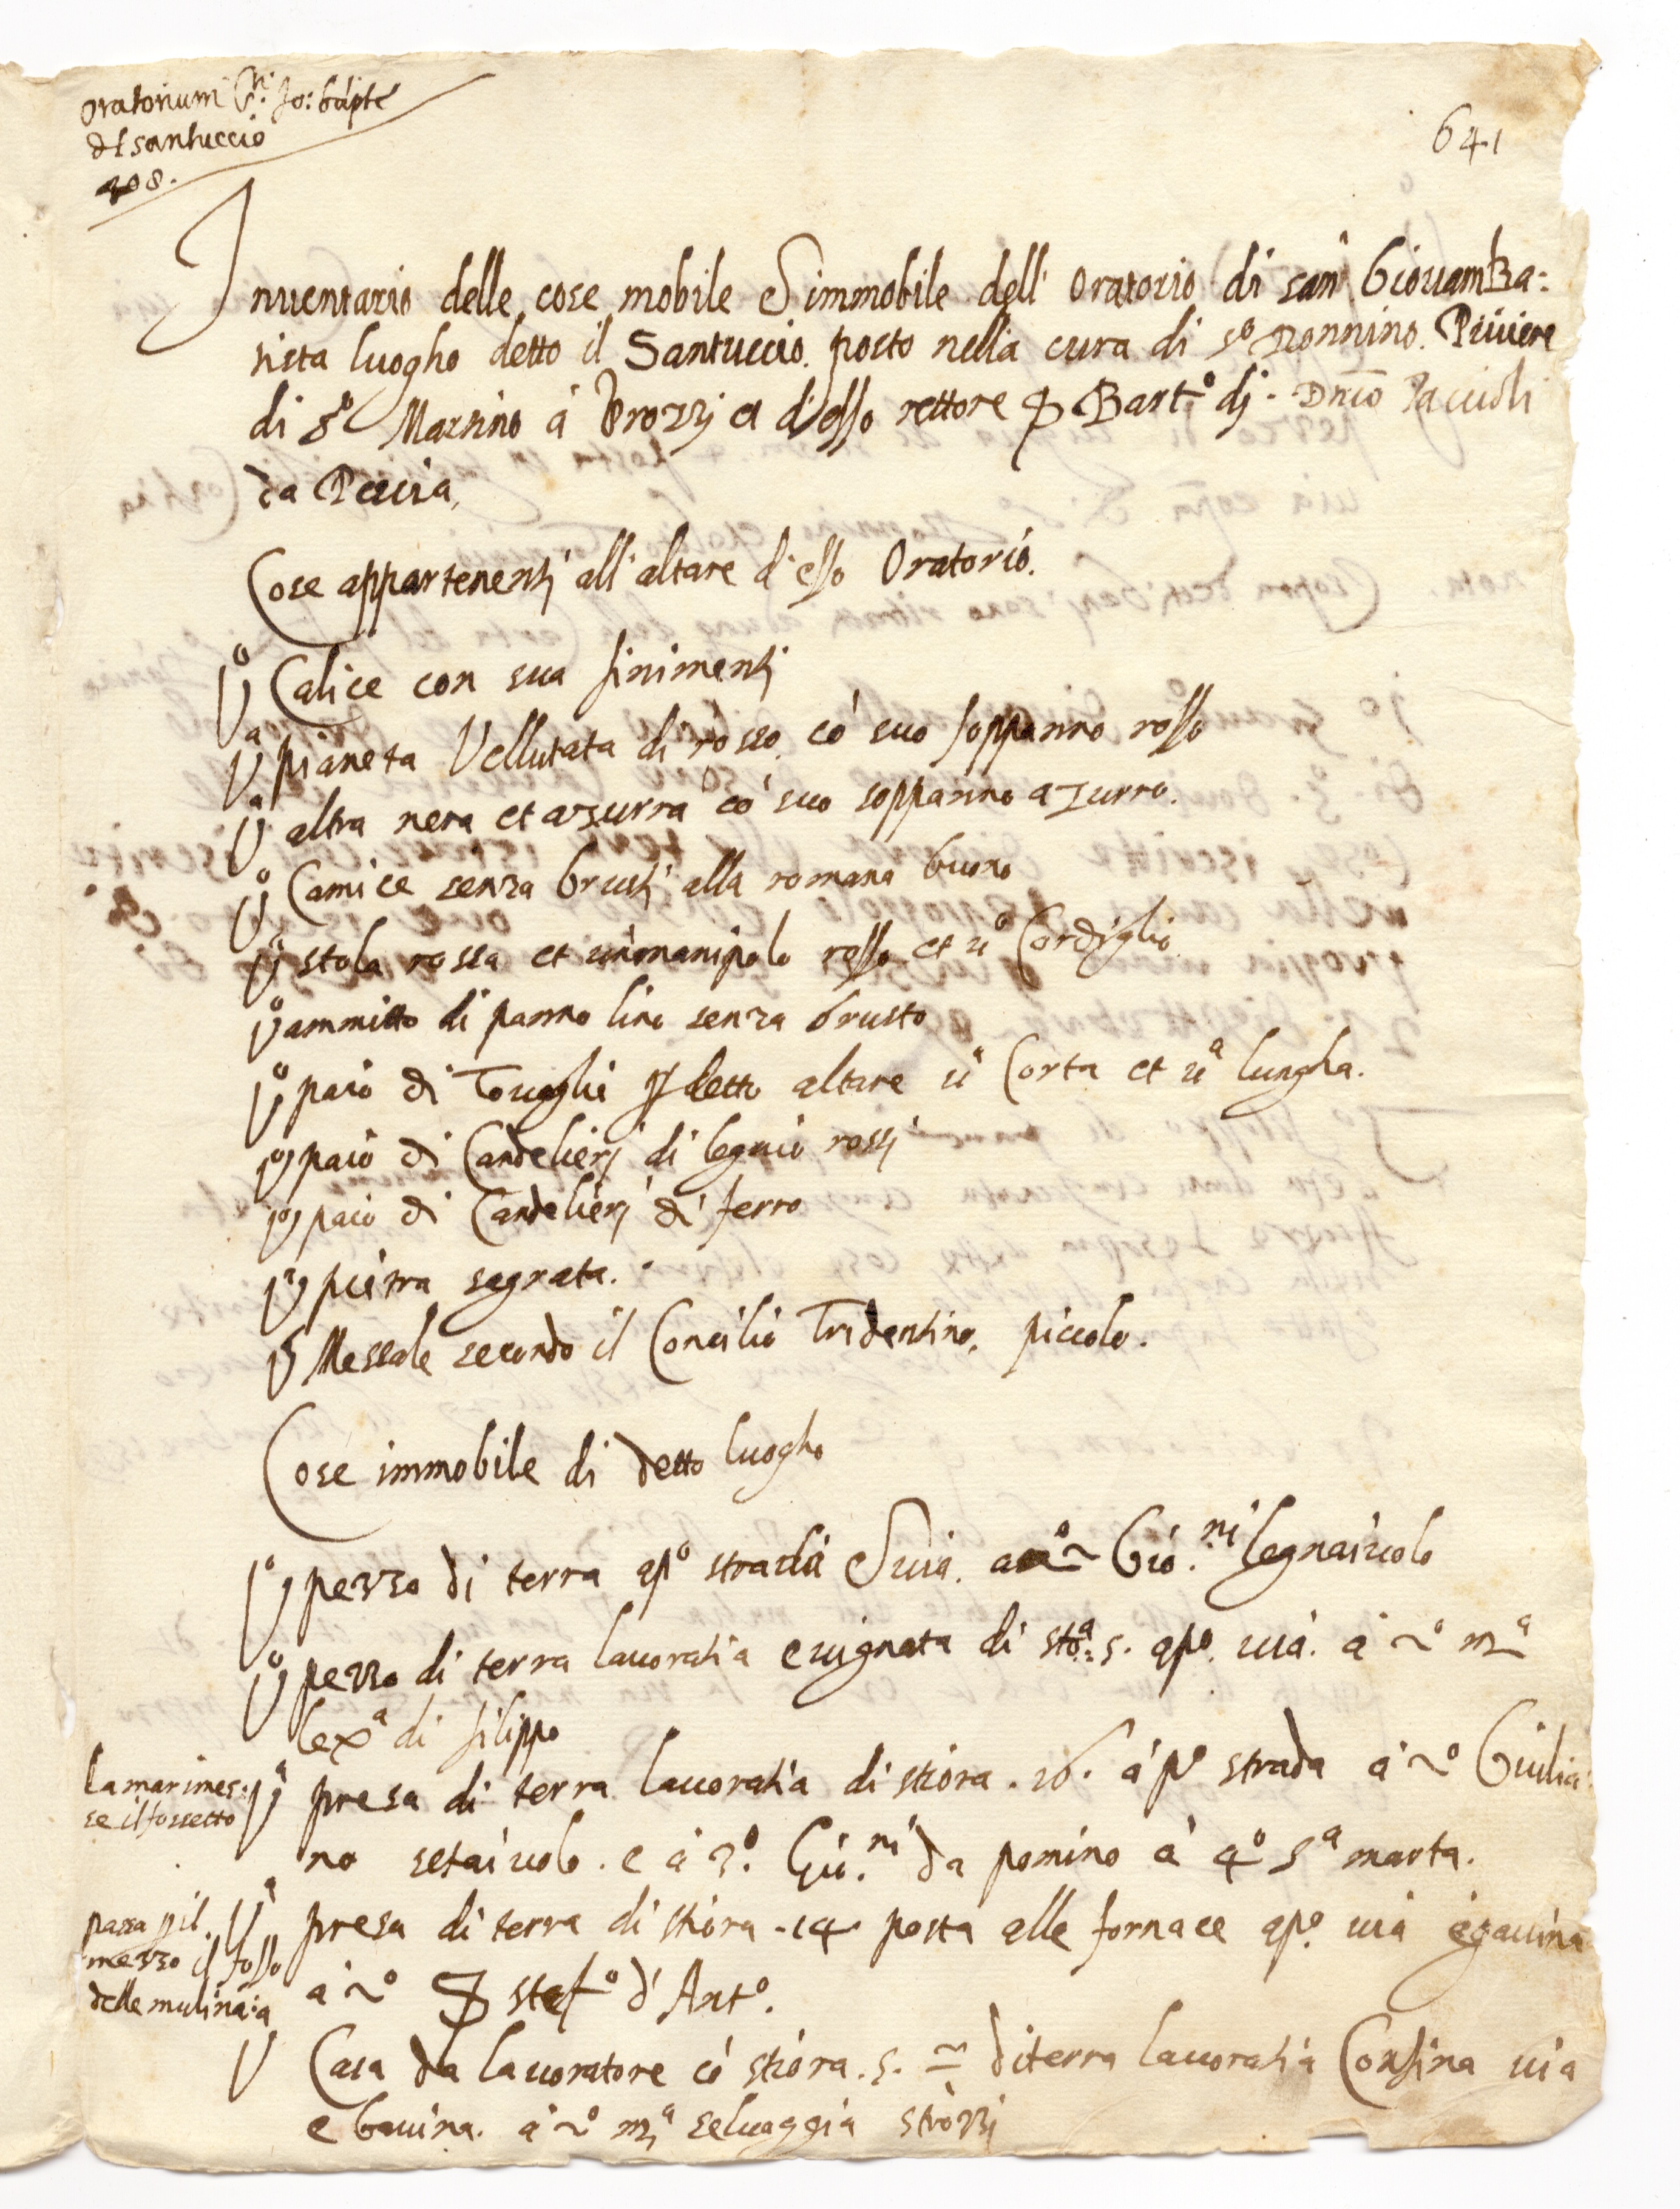 Oratorium S.ti Jo: bapte
del santuccio
208.
641
Inventario delle cose mobile & immobile dell' Oratorio di san Giovam Ba=
tista luogho detto il Santuccio. posto nella cura di s.o Donnino. Piviere
di s.o Martino à Brozzi et d'esso rettore P Bart.o di Dnico
da Pescia.
Cose appartenenti all'altare d'esso Oratorio.
jº Calice con sua finimenti
jª pianeta Vellutata di rosso. cò suo soppanno rosso
jª altra nera et azurra cò suo soppanno azurro.
jº Camice senza brusti alla romana buono
jª stola rossa et un manipolo rosso et uº Cordiglio
jº ammitto di panno lino senza brusto
jº paio di Tovaglie p detto altare uª Corta et uª lungha.
jº paio di Candelieri di legnio rossi
jº paio di Candelieri di ferro
jª pietra sagrata.
jº Messale secondo il Concilio Tridentino, piccolo.
Cose immobile di detto luogho
jº pezzo di terra apº strada & via. a 2º Gio.ni legnaiuolo
jº pezzo di terra lavoratia e vignata di stª. 5. apº. via. à 2º mª
lexª di filippo
la marimes:
se il fossetto
jª presa di terra lavoratia di stiora. 26. à pº strada à 2º Giulia
no setaiuolo. e à 3º. Gio.ni da pomino à 4º Sª marta.
passa p il
mezzo il fosso
delle mulina:a
jª presa di terra di stiora -14 posta alle fornace apº. via e gavina
à 2º stefº d'Antº.
j Casa da lavoratore cò stiora. 5. di terra lavoratia Confina via
e Gavina. à 2º mª selvaggia strozzi